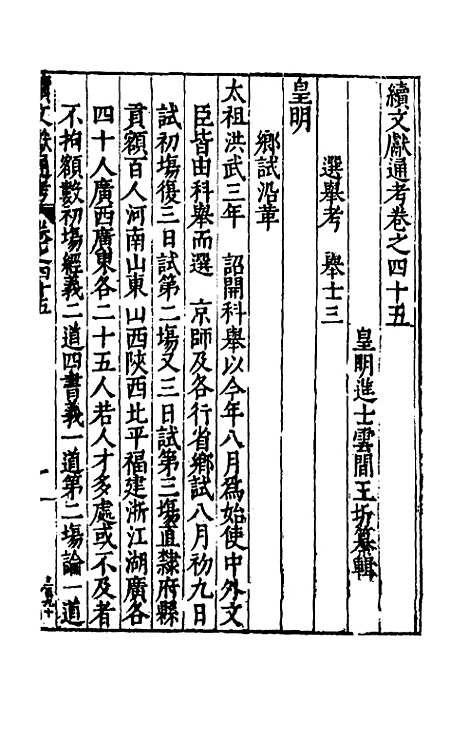 續文獻通考卷之四十五
皇明進士雲間王圻纂輯
選舉考 舉士三
皇明
鄉試沿革
太祖洪武三年 詔開科舉以今年八月為始使中外文
臣皆由科舉而選 京師及各行省鄉試八月初九日
試初場復三日試第二場又三日試第三場直隸府縣
貢額百人河南山東山西陝西北平福建浙江湖廣各
四十人廣西廣東各二十五人若人才多處或不及者
不拘額數初場經義二道四書義一道第二場論一道
續文獻通考 卷之四十五 一